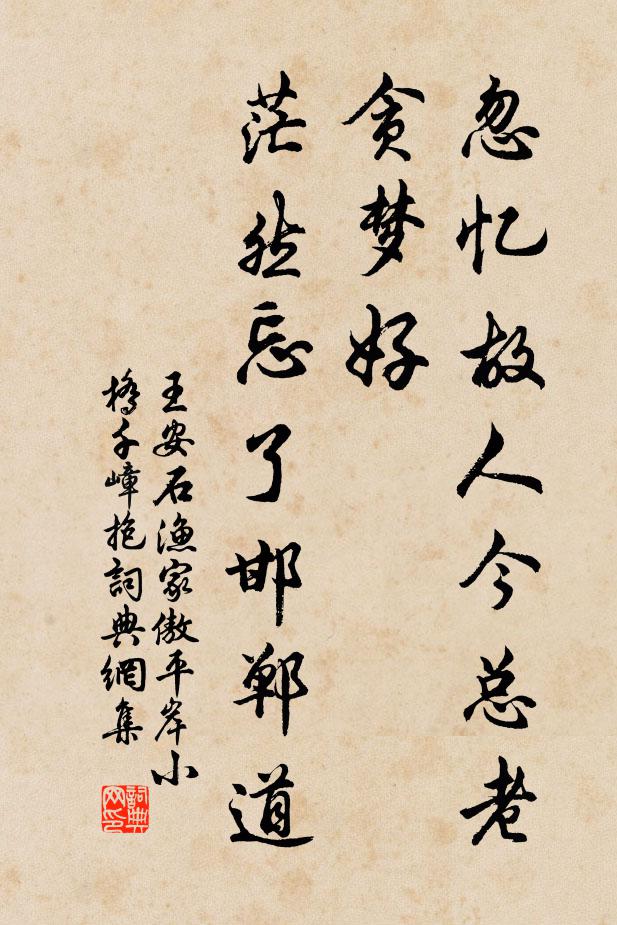 忽忆故人今总老
贪梦好
茫然忘了邯郸道
王安石渔家傲平岸小
桥千嶂抱詞典網集
詞典网印